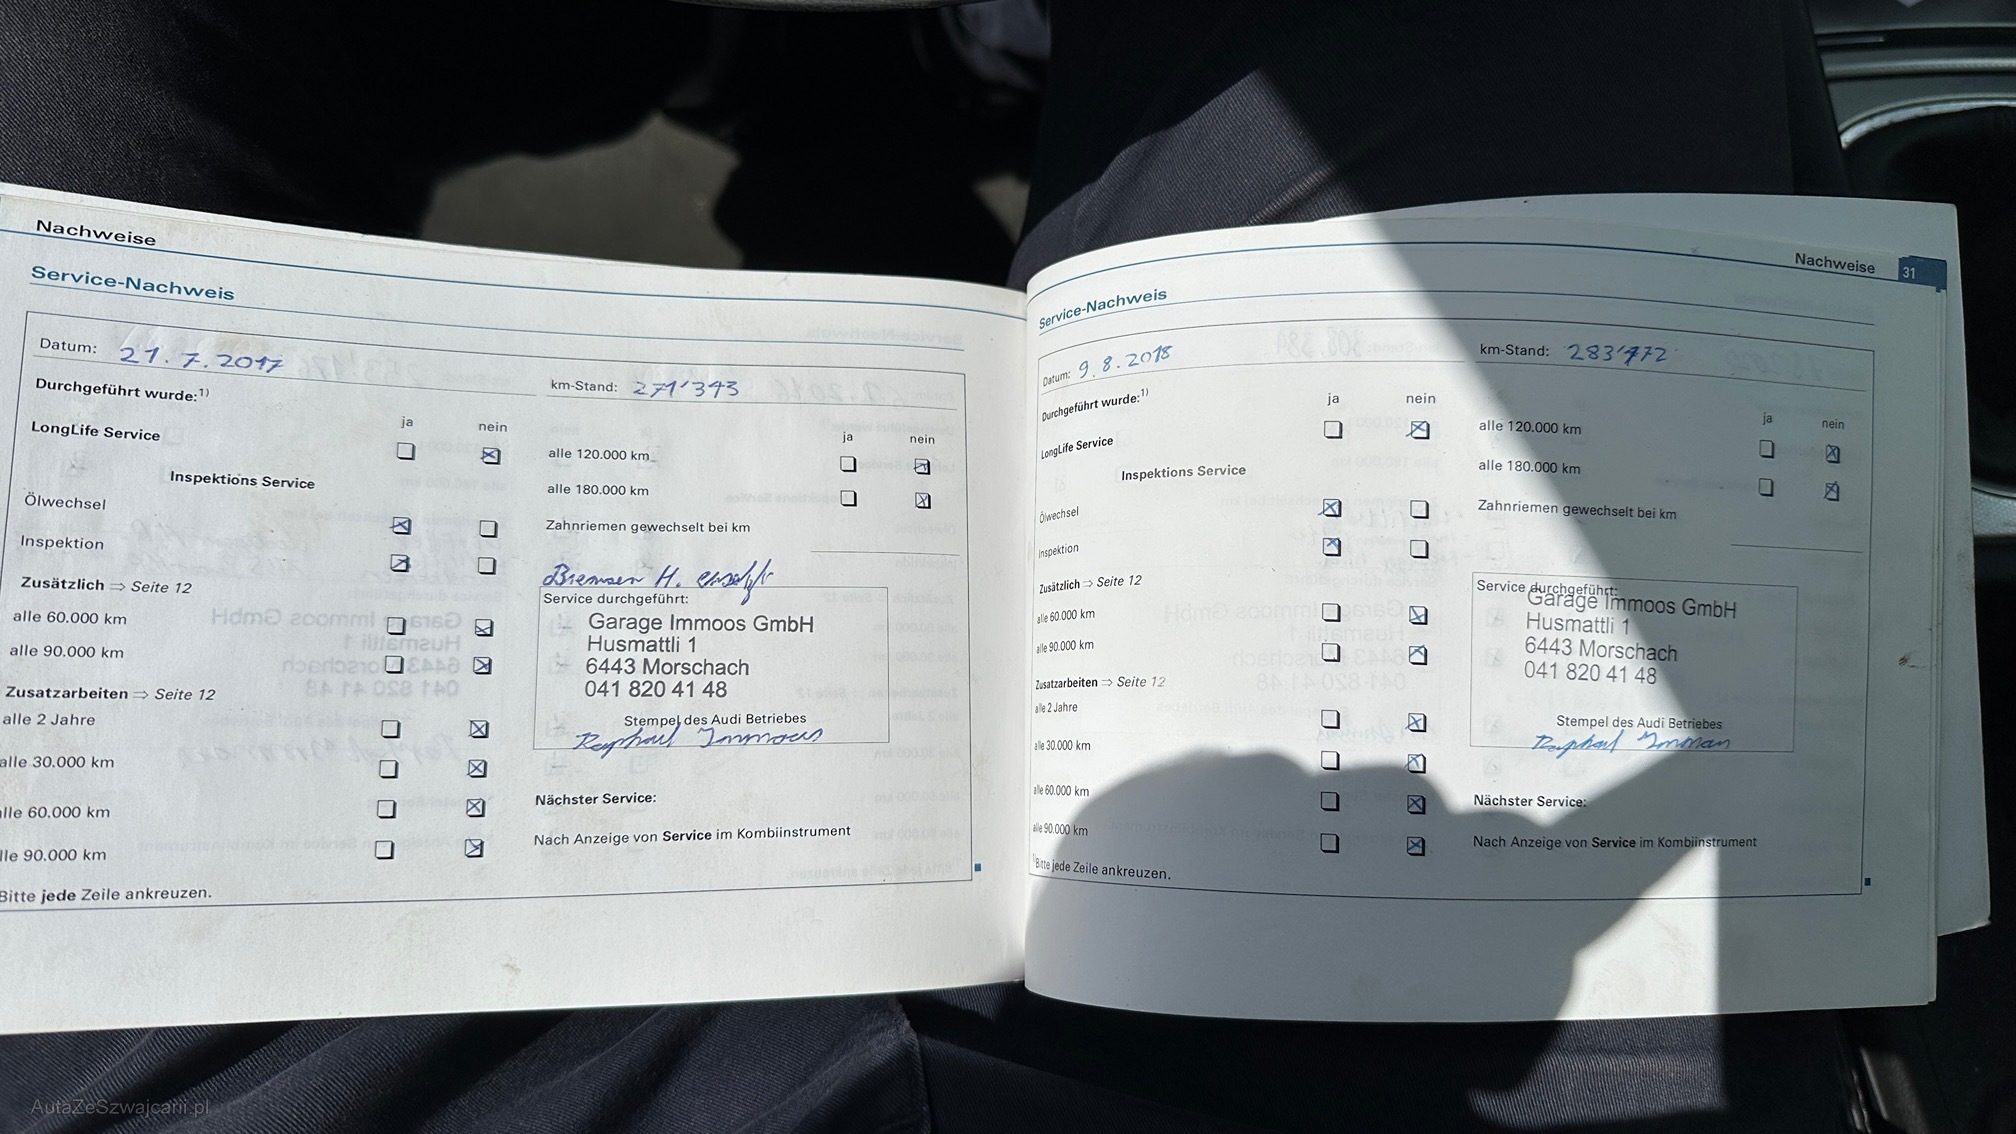 Nachweise
Service-Nachweis
Datum: 21.7.2017
km-Stand: 271'343
Durchgeführt wurde:1)
ja nein
ja nein
LongLife Service
alle 120.000 km
Inspektions Service
alle 180.000 km
Ölwechsel
Zahnriemen gewechselt bei km
Inspektion
Bremsen H. ersetzt
Zusätzlich ⇒ Seite 12
Service durchgeführt:
alle 60.000 km
Garage Immoos GmbH
Husmattli 1
alle 90.000 km
6443 Morschach
041 820 41 48
Zusatzarbeiten ⇒ Seite 12
alle 2 Jahre
Stempel des Audi Betriebes
Raphael Immoos
alle 30.000 km
Nächster Service:
alle 60.000 km
Nach Anzeige von Service im Kombiinstrument
lle 90.000 km
Bitte jede Zeile ankreuzen.
Nachweise 31
Service-Nachweis
Datum: 9.8.2018
km-Stand: 283'772
Durchgeführt wurde:1)
ja nein
ja nein
LongLife Service
alle 120.000 km
Inspektions Service
alle 180.000 km
Ölwechsel
Zahnriemen gewechselt bei km
Inspektion
Zusätzlich ⇒ Seite 12
Service durchgeführt:
alle 60.000 km
Garage Immoos GmbH
Husmattli 1
alle 90.000 km
6443 Morschach
041 820 41 48
Zusatzarbeiten ⇒ Seite 12
alle 2 Jahre
Stempel des Audi Betriebes
Raphael Immoos
alle 30.000 km
alle 60.000 km
Nächster Service:
alle 90.000 km
Nach Anzeige von Service im Kombiinstrument
1)Bitte jede Zeile ankreuzen.
AutaZeSzwajcarii.pl